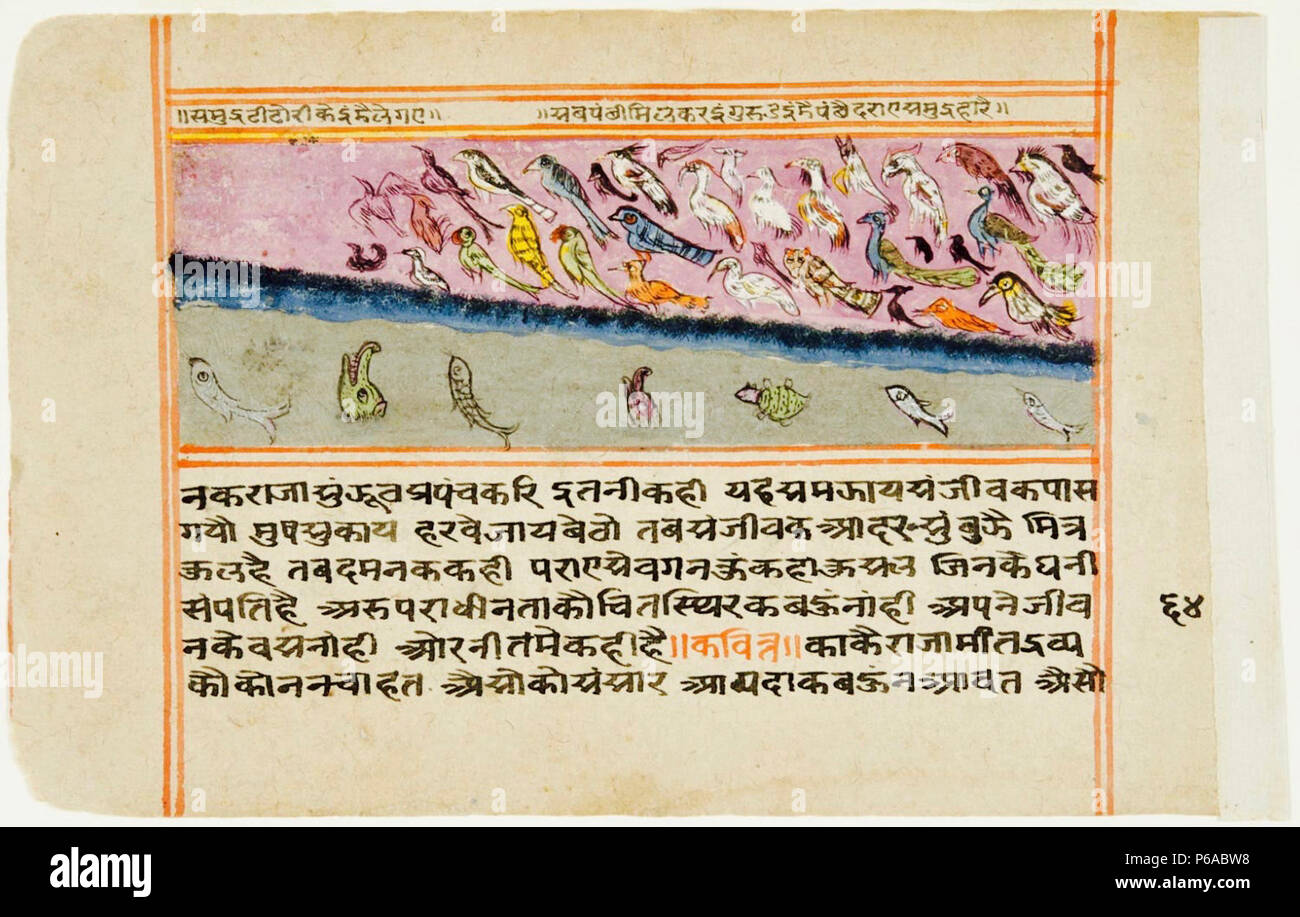 ॥समुद्रटीटोरीकेइंमैलेगए॥ ॥सबपंषीमिलकरइंगुरुउइंमैपंषैदराएसमुद्रहारै॥
नकराजासुंऊवप्रपंचकरि इतनीकही यहसमऊायसंजीवकपास
गयो मुषसुकाय हरवैजायबेठो तबसंजीवकआदरसुंबुऊै मित्र
ऊलहै तबदमनककही पराएसेवगनऊंकहीऊसल जिनकैधनी
संपतिहै अरुपराधीनताकौचितस्थिरकबऊंनांही अपनेजीव
नकेवसनांही ओरनीतमेकहीहै॥कवित्त॥काकैराजामींतद्रव्य
कौकोननचाहत असोकोसंसार आपदाकबऊंनआवत असौ
६४
alamy
Image ID: P6ABW8
www.alamy.com